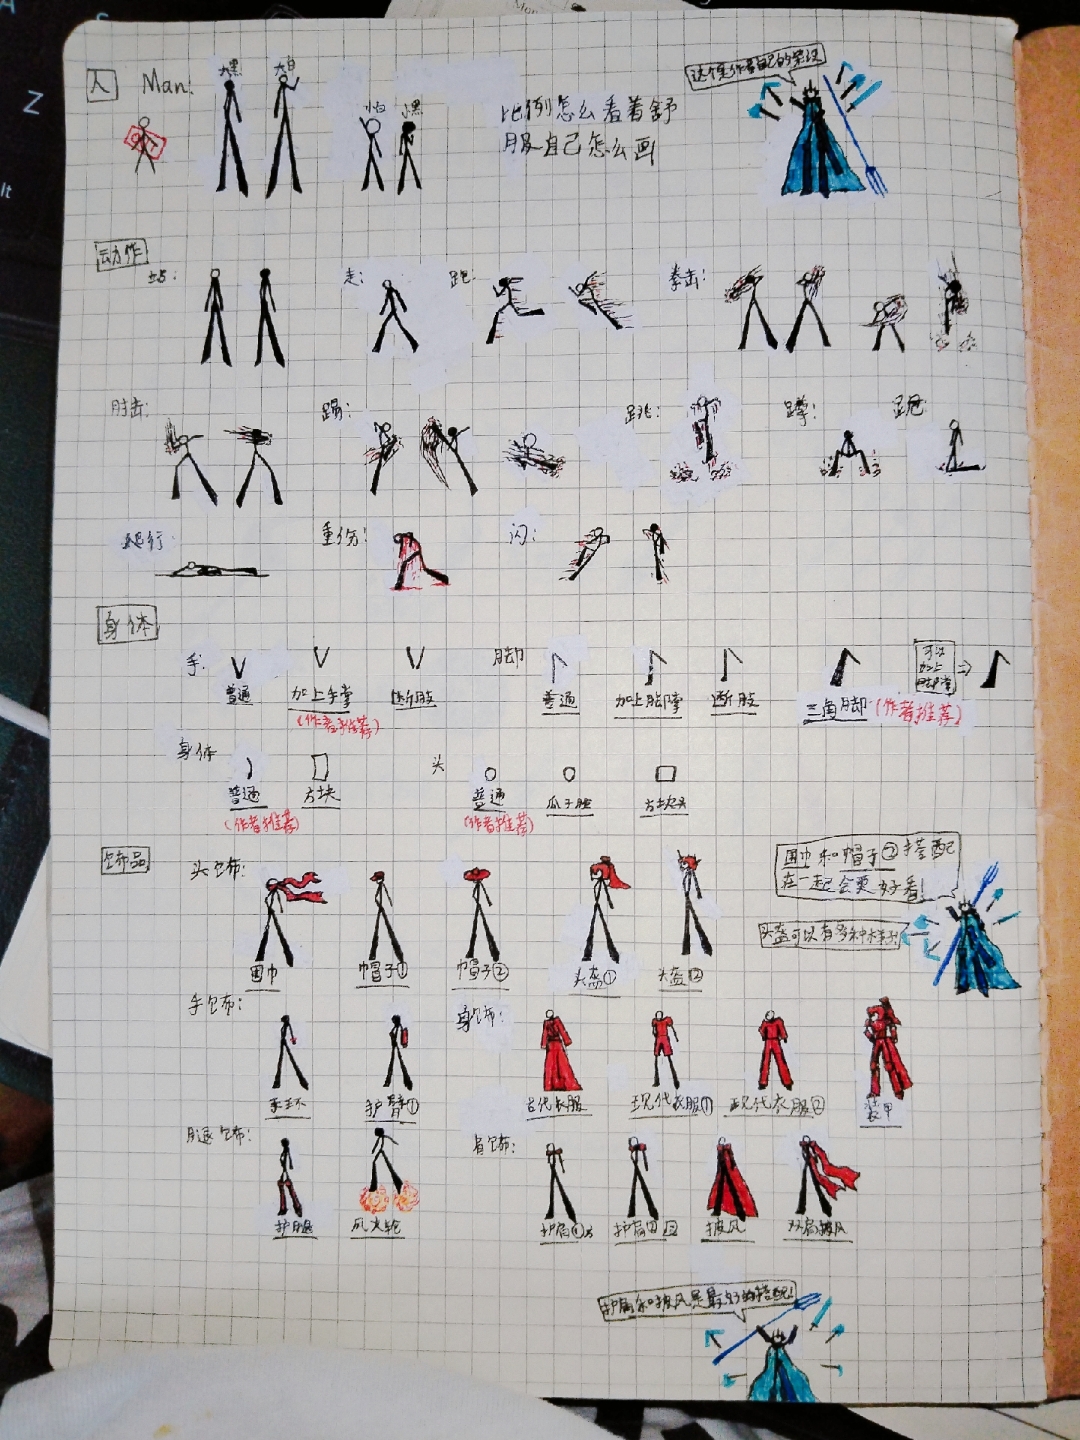 人
Man:
大黑
大白
小白
小黑
比例怎么看着舒
服自己怎么画
动作
站:
走:
跑:
拳击:
肘击:
踢:
跳:
蹲:
跪
爬行:
重伤:
闪:
身体
手:
普通
加上手掌
(作者推荐)
断肢
脚
普通
加上脚掌
断肢
三角脚
(作者推荐)
可以
加上
脚掌
身体
普通
(作者推荐)
方块
头
普通
(作者推荐)
瓜子脸
方块头
饰品
头饰:
围巾
帽子①
帽子②
头盔①
头盔②
围巾和帽子②搭配
在一起会更好看!
头盔可以有多种样式
手饰:
手环
护臂①
身饰:
古代衣服
现代衣服①
现代衣服②
装甲
腿饰:
护腿
风火轮
肩饰:
护肩①
护肩
披风
双肩披风
护肩和披风是最好的搭配!